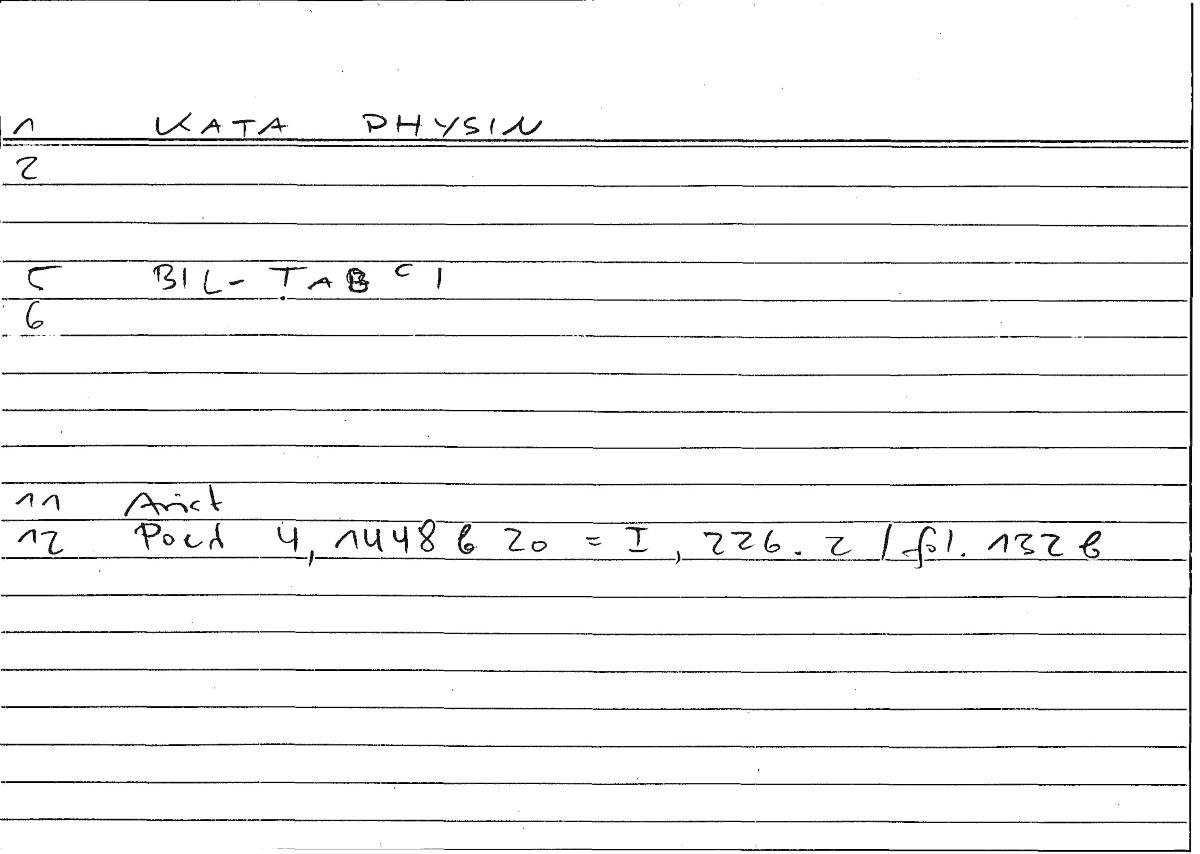 1 KATA PHYSIN
2
5 BIL-ṬABʿI
6
11 Arist
12 Poet 4, 1448 b 20 = I, 226.2 / fol. 132 b